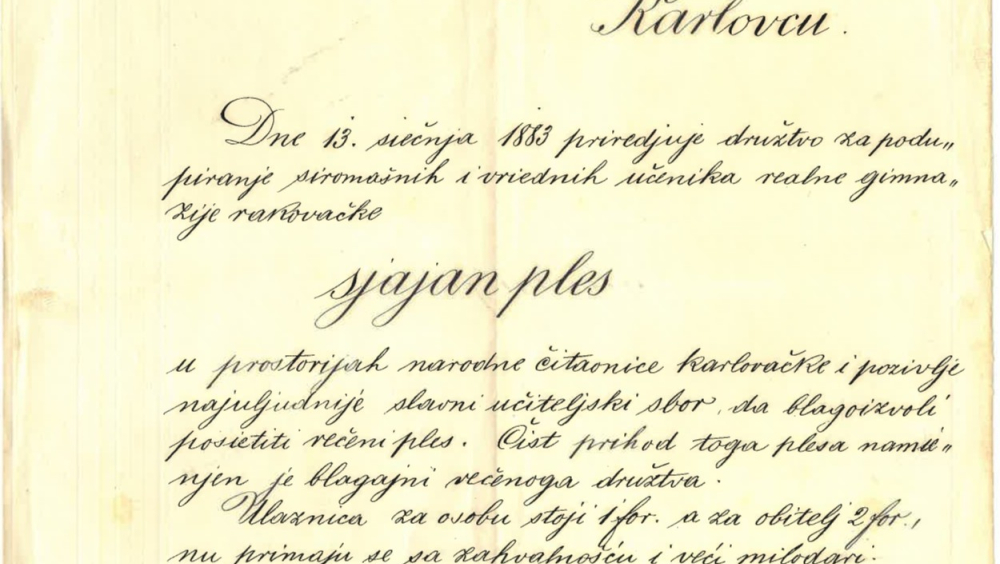 Karlovcu.
Dne 13. siečnja 1883 priredjuje družtvo za podu„
piranje siromašnih i vriednih učenika realne gimna„
zije rakovačke
sjajan ples
u prostorijah narodne čitaonice karlovačke i pozivlje
najuljudnije slavni učiteljski sbor, da blagoizvoli
posietiti rečeni ples. Čist prihod toga plesa namie„
njen je blagajni rečenoga družtva.
Ulaznica za osobu stoji 1 for. a za obitelj 2 for.,
nu primaju se sa zahvalnošću i veći milodari.